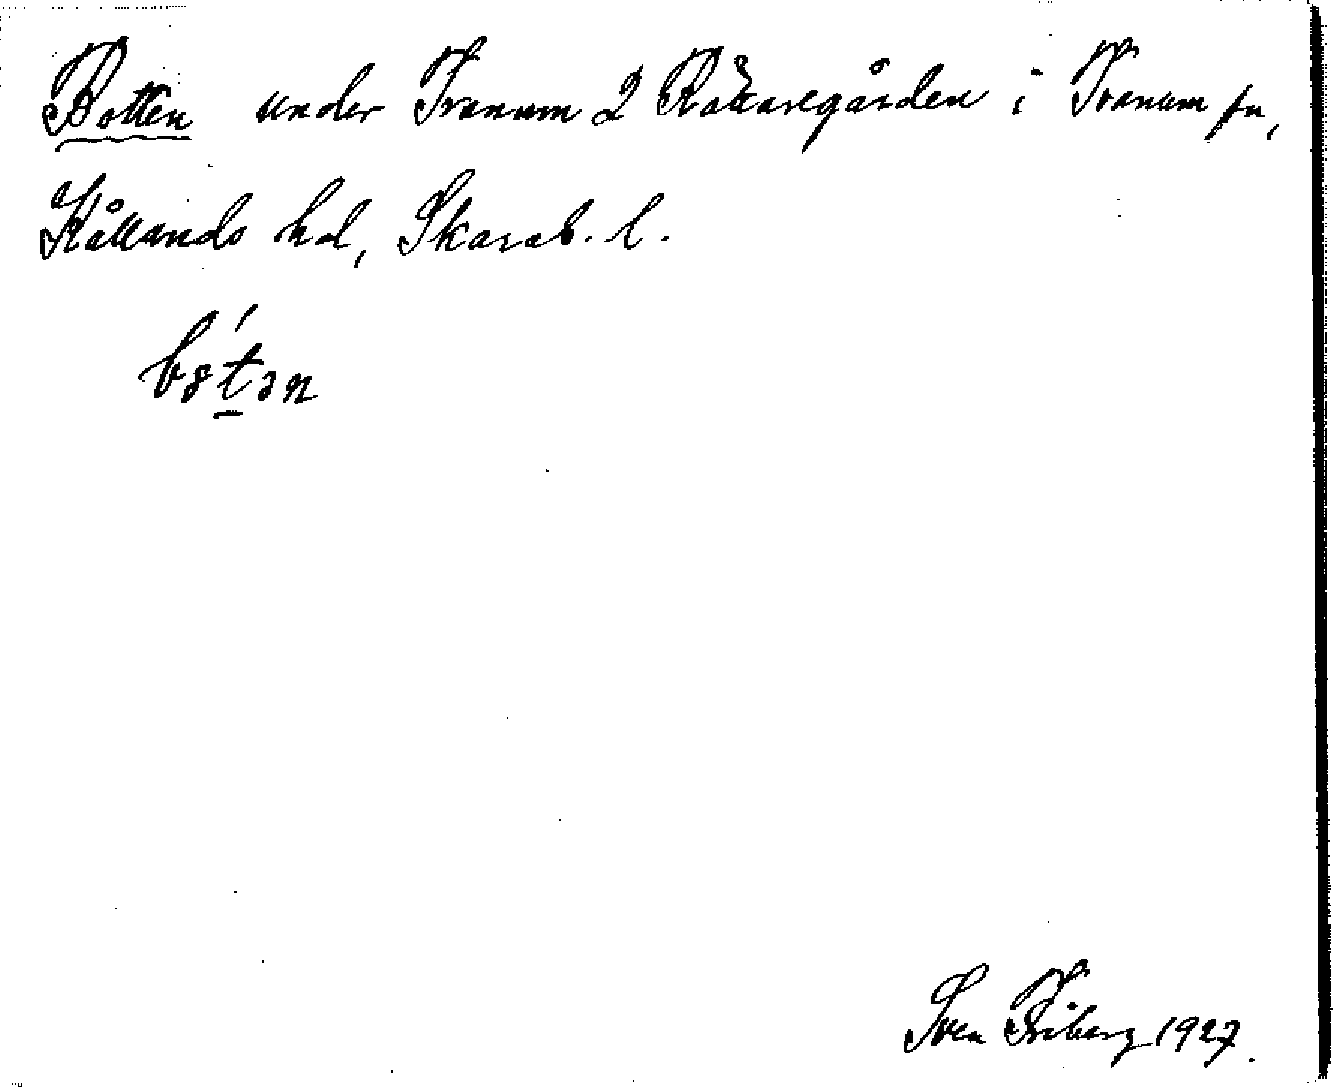 Botten under Tranum 2 Råkaregården i Tranum sn,
Kållands hd, Skarab. l.
bo̍tən
Sven Friberg 1927.